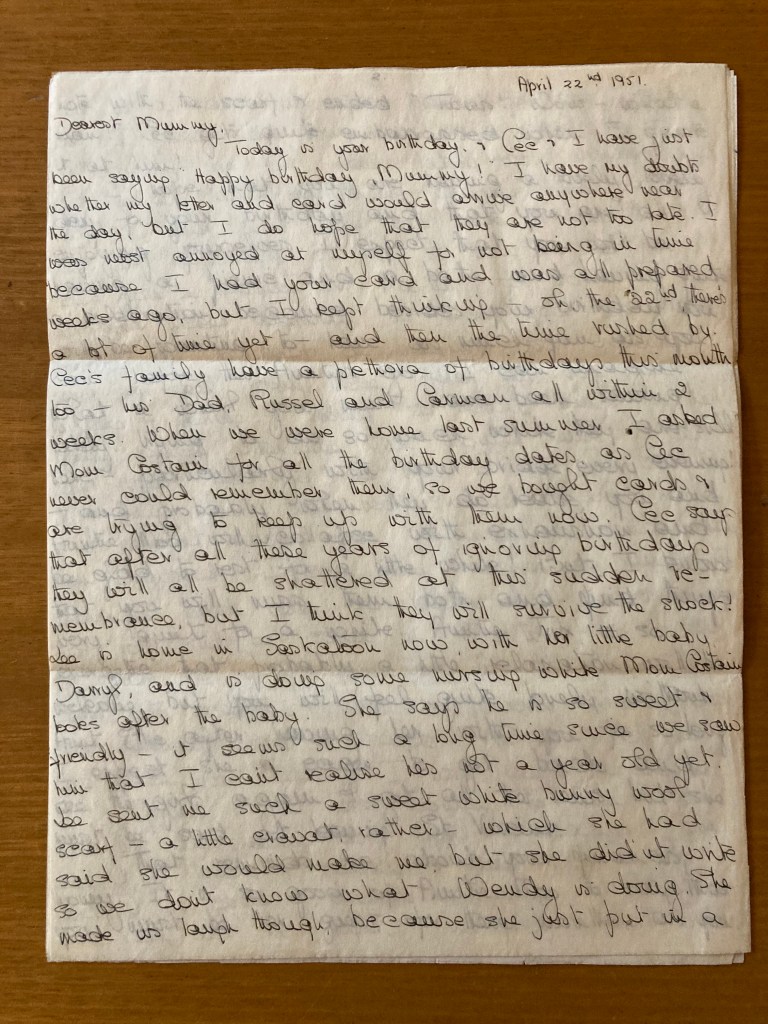 April 22nd 1951.
Dearest Mummy,
Today is your birthday, & Cec & I have just
been saying "Happy birthday, Mummy!" I have my doubts
whether my letter and card would arrive anywhere near
the day, but I do hope that they are not too late. I
was most annoyed at myself for not being in time
because I had your card and was all prepared
weeks ago, but I kept thinking – oh the 22nd, there's
a lot of time yet – and then the time rushed by.
Cec's family have a plethora of birthdays this month
too – his Dad, Russel and Carman all within 2
weeks. When we were home last summer I asked
Mom Costain for all the birthday dates, as Cec
never could remember them, so we bought cards &
are trying to keep up with them now. Cec says
that after all these years of ignoring birthdays
they will all be shattered at this sudden re-
membrance, but I think they will survive the shock!
is home in Saskatoon now, with her little baby
Darryl, and is doing some nursing while Mom Costain
looks after the baby. She says he is so sweet &
friendly – it seems such a long time since we saw
him that I can't realise he's not a year old yet.
sent me such a sweet white bunny wool
scarf – a little cravat rather – which she had
said she would make me, but she didn't write
so we don't know what Wendy is doing. She
made us laugh though, because she just put in a